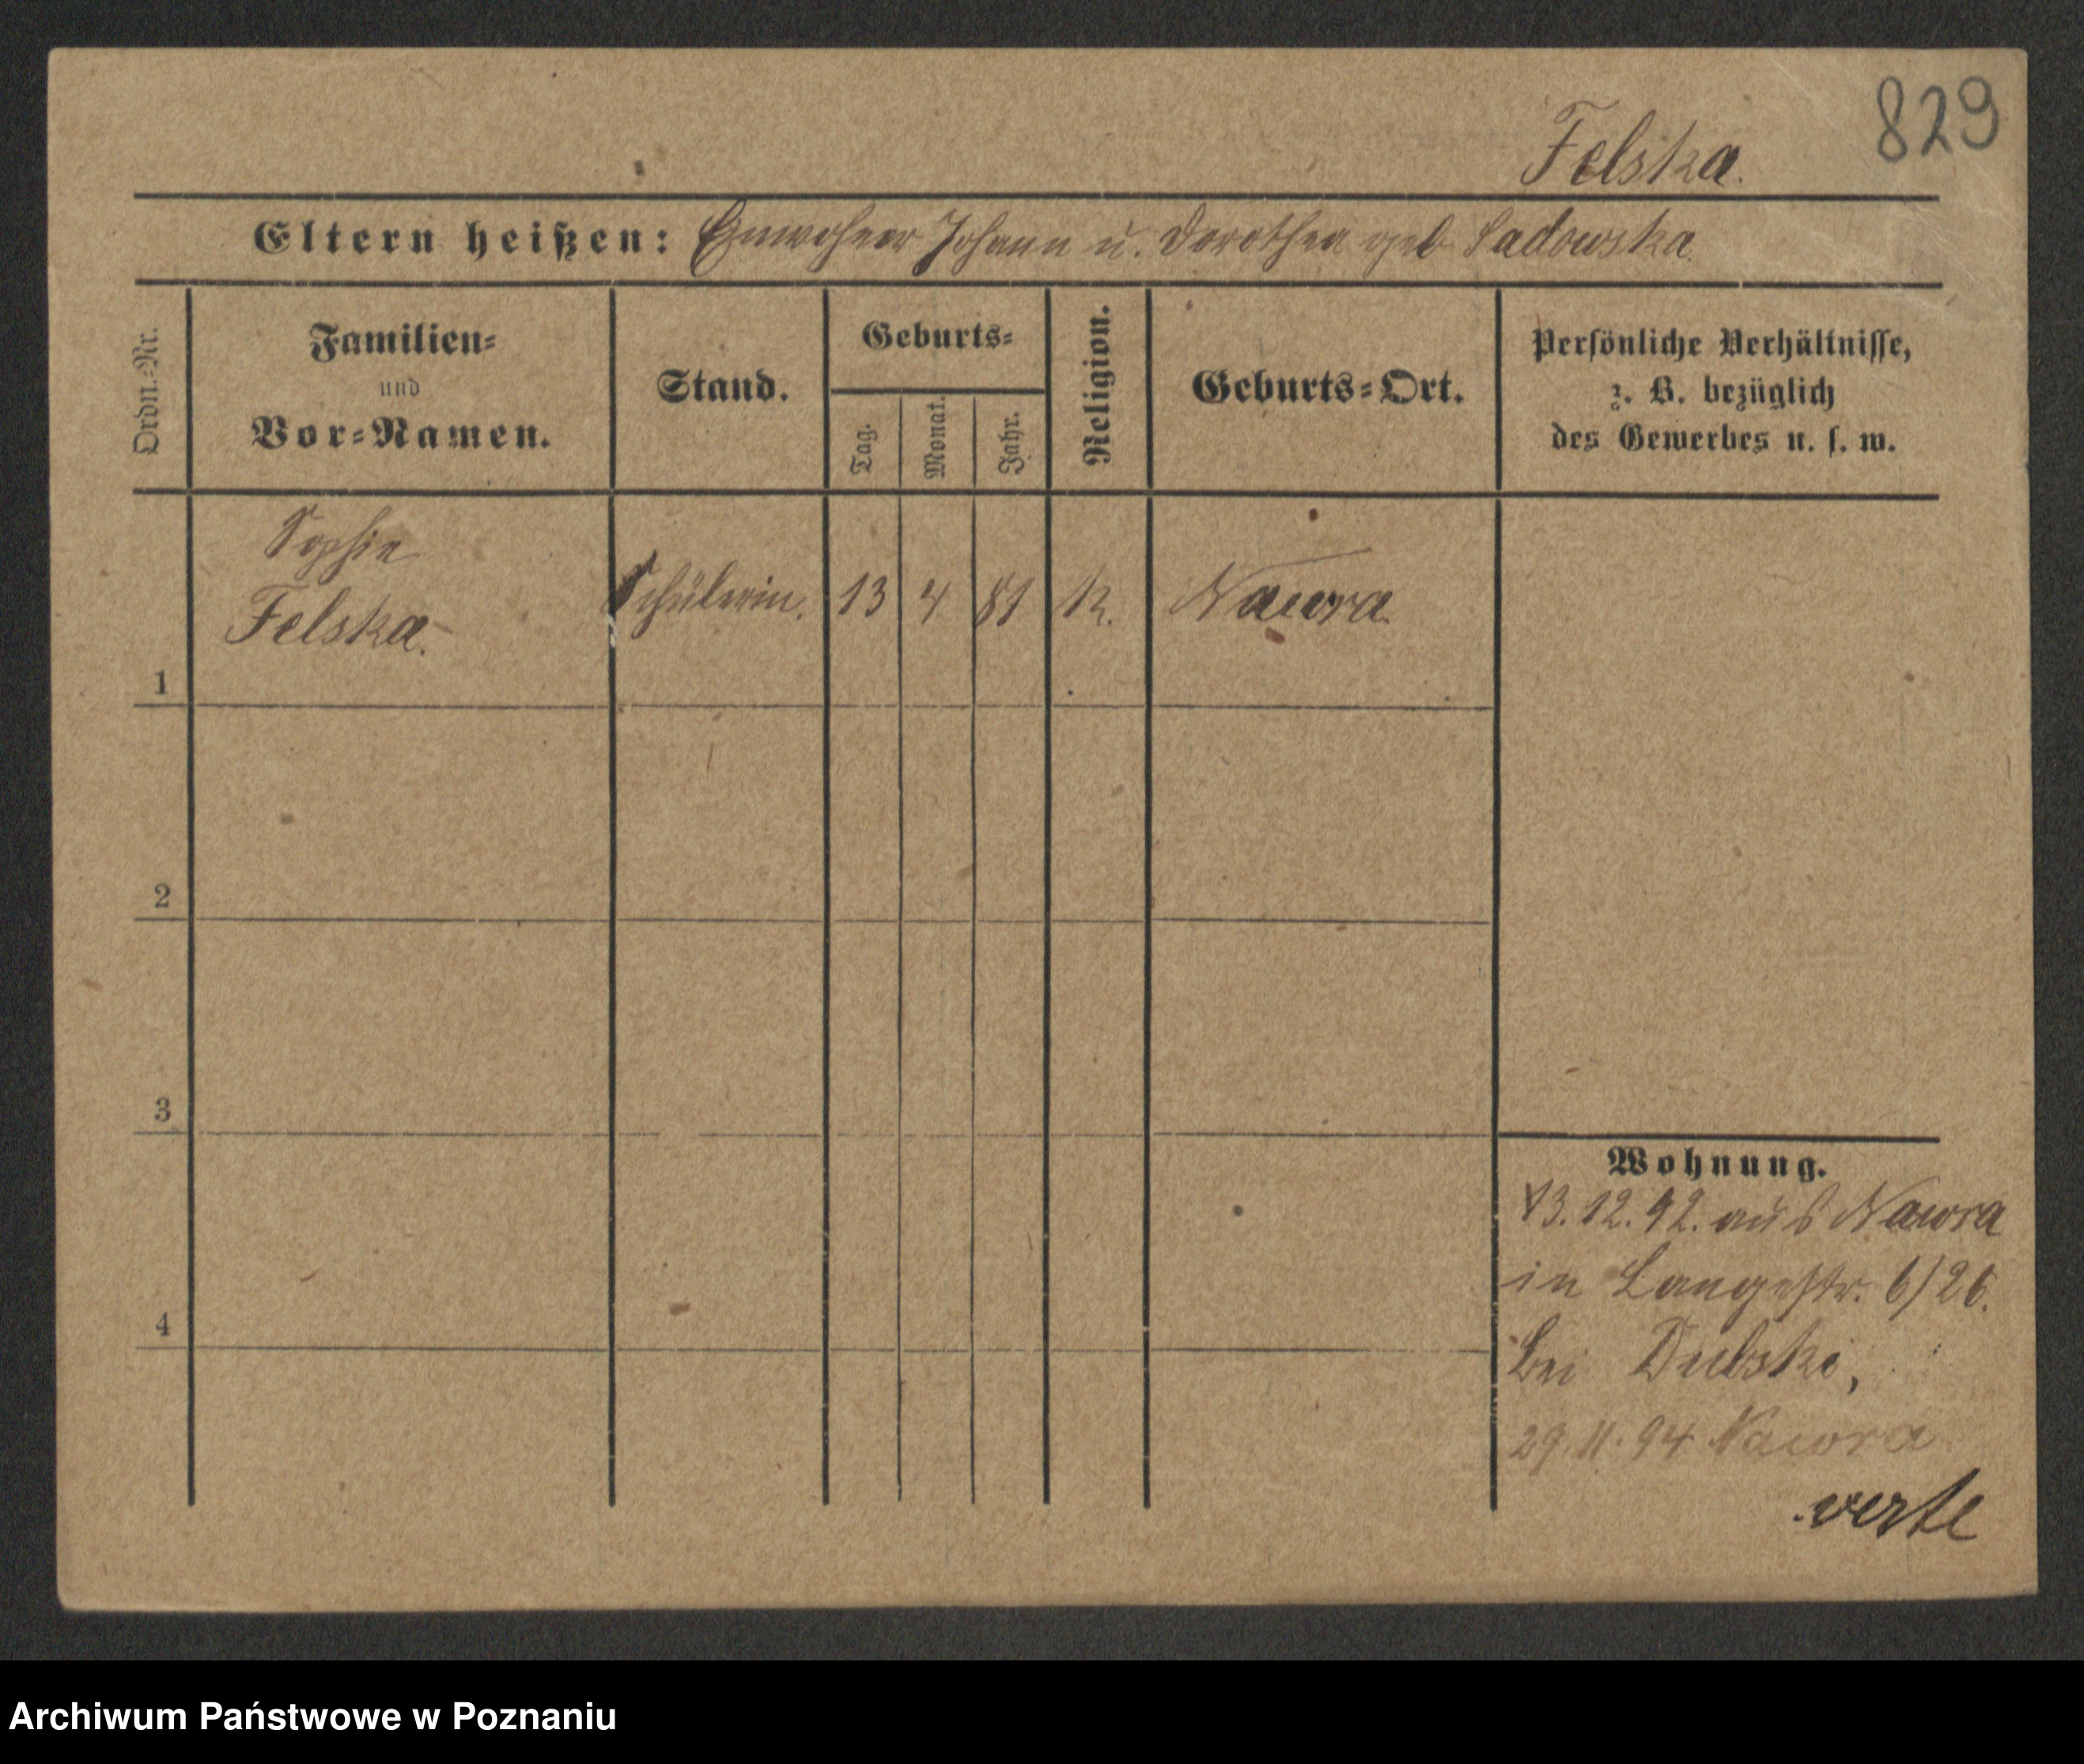 829
Felska.
Eltern heißen: Einwohner Johann u. Dorothea geb Sadowska.
Ordn.-Nr.
Familien-
und
Vor-Namen.
Stand.
Geburts-
Tag.
Monat.
Jahr.
Religion.
Geburts-Ort.
Persönliche Verhältnisse,
z. B. bezüglich
des Gewerbes u. s. w.
1
Sophie
Felska.
Schülerin.
13
4
81
K.
Nawra.
2
3
4
Wohnung.
13.12.92. aus Nawra
in Langestr. 6/26.
bei Dubski,
29.11.94 Nawra
verte
Archiwum Państwowe w Poznaniu